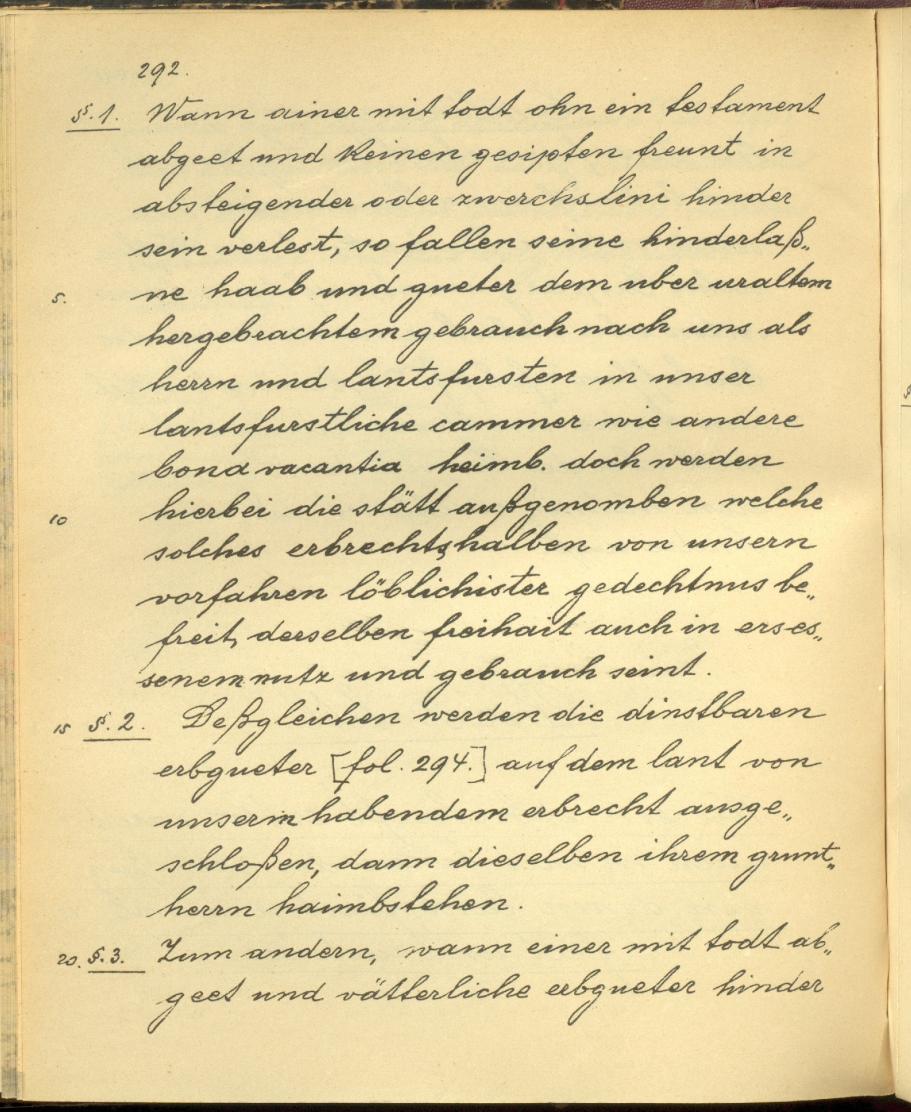 292.
§. 1. Wann ainer mit todt ohn ein testament
abgeet und keinen gesipten freunt in
absteigender oder zwerchslini hinder
sein verlest, so fallen seine hinderlaß„
5. ne haab und gueter dem uber uraltem
hergebrachtem gebrauch nach uns als
herrn und lantsfursten in unser
lantsfurstliche cammer wie andere
bona vacantia heimb. doch werden
10 hierbei die stätt außgenomben welche
solches erbrechtshalben von unsern
vorfahren löblichister gedechtnus be„
freit, derselben freihait auch in erses„
senem nutz und gebrauch seint.
15 §. 2. Deßgleichen werden die dinstbaren
erbgueter [fol. 294.] auf dem lant von
unserm habendem erbrecht ausge„
schloßen, dann dieselben ihrem grunt„
herrn haimbstehen.
20. §. 3. Zum andern, wann einer mit todt ab„
geet und vätterliche erbgueter hinder